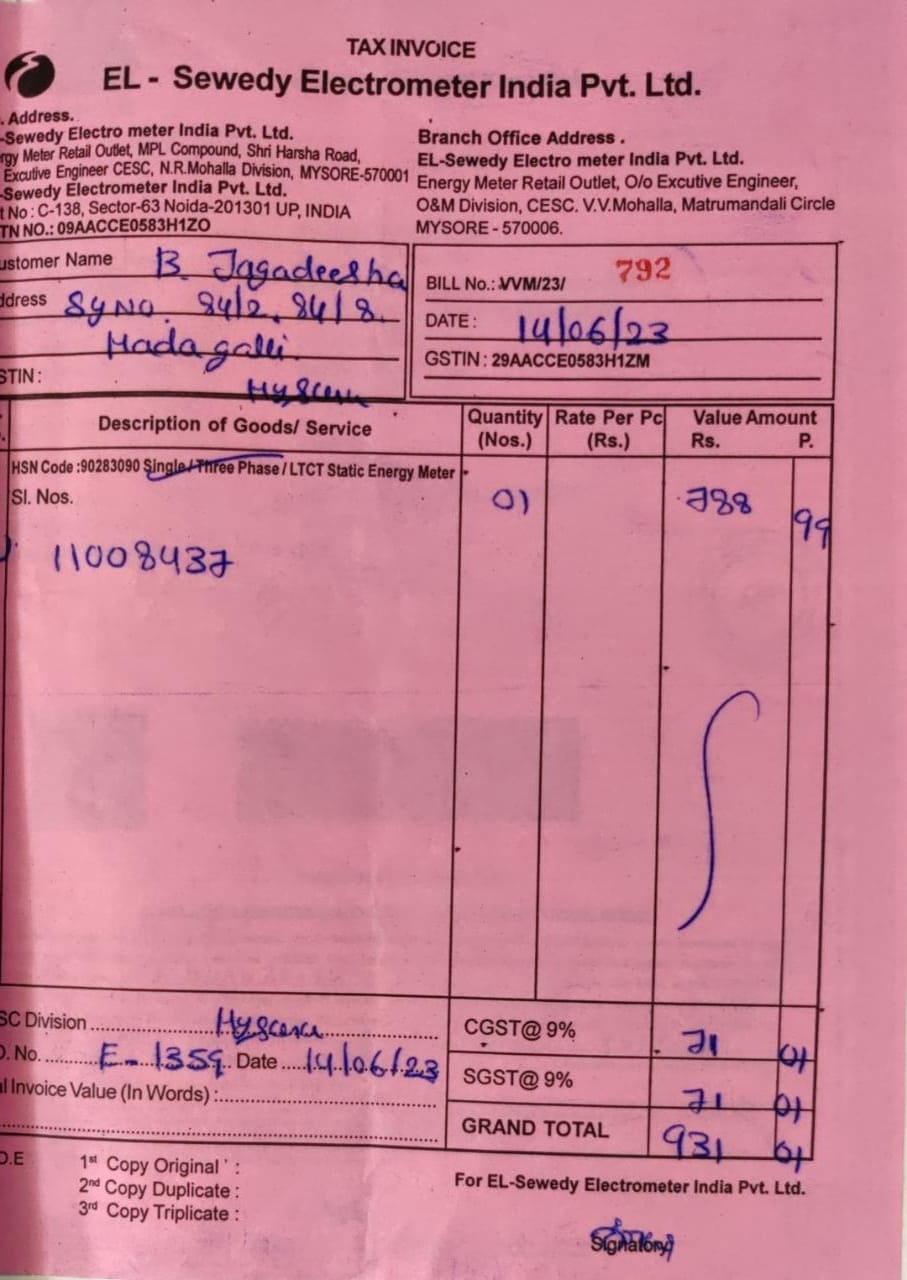 TAX INVOICE
EL - Sewedy Electrometer India Pvt. Ltd.
. Address.
-Sewedy Electro meter India Pvt. Ltd.
rgy Meter Retail Outlet, MPL Compound, Shri Harsha Road,
Excutive Engineer CESC, N.R.Mohalla Division, MYSORE-570001
-Sewedy Electrometer India Pvt. Ltd.
t No : C-138, Sector-63 Noida-201301 UP, INDIA
TN NO.: 09AACCE0583H1ZO
Branch Office Address .
EL-Sewedy Electro meter India Pvt. Ltd.
Energy Meter Retail Outlet, O/o Excutive Engineer,
O&M Division, CESC. V.V.Mohalla, Matrumandali Circle
MYSORE - 570006.
ustomer Name B. Jagadeesha
ddress Sy No. 84/2, 84/8.
Madagalli.
STIN :
BILL No.: VVM/23/ 792
DATE : 14/06/23
GSTIN : 29AACCE0583H1ZM
Description of Goods/ Service Quantity (Nos.) Rate Per Pc (Rs.) Value Amount Rs. P.
HSN Code :90283090 Single/Three Phase / LTCT Static Energy Meter
Sl. Nos. 01 788 99
11008437
SC Division
O. No. E-1359 Date 14/06/23
l Invoice Value (In Words) :
CGST@ 9% 71 01
SGST@ 9% 71 01
GRAND TOTAL 931 01
O.E
1st Copy Original :
2nd Copy Duplicate :
3rd Copy Triplicate :
For EL-Sewedy Electrometer India Pvt. Ltd.
Signatory